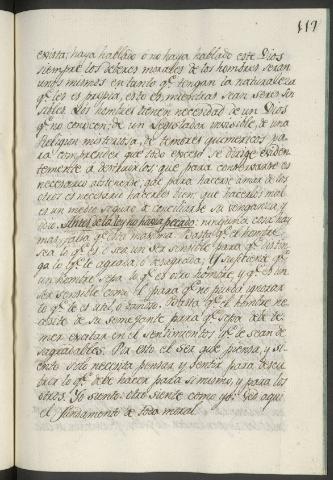 117
exista; haya hablado o no haya hablado este Dios
siempre los deberes morales de los hombres seran
unos mismos en tanto qᵉ tengan la naturaleza
qᵉ les es propia, esto es mientras sean seres sen
sibles. Los hombres tienen necesidad de un Dios
qᵉ no conocen; de un Legislador invisible, de una
Religion misteriosa, de temores quimericos pa
ra comprender que todo exceso se dirige eviden
temente á destruirlos, que para conservarse es
necesario abstenerse, qᵉ para hacerse amar de los
otros es necesario hacerles bien, que hacerles mal
es un medio seguro de conciliarse su venganza y
odio. Antes de la ley no havia pecado: ninguna cosa hay
mas falsa qᵉ esta maxima. Basta qᵉ el hombre
sea lo qᵉ es, ó sea un ser sensible para qᵉ distin
ga lo qᵉ le agrada ó desagrada; Es suficiente qᵉ
un hombre sepa lo qᵉ es otro hombre, y qᵉ es un
ser sensible como él para qᵉ no pueda ignorar
lo qᵉ le es util, ó dañoso. Basta qᵉ el hombre ne
cesite de su semejante para qᵉ sepa debe te
mer excitar en él sentimientos qᵉ le sean de
sagradables. Por esto el ser que piensa, y si
ente solo necesita pensar y sentir para descu
brir lo qᵉ debe hacer para si mismo, y para los
otros. Yo siento: otro siente como yo: Ved aqui
el fundamento de toda moral.